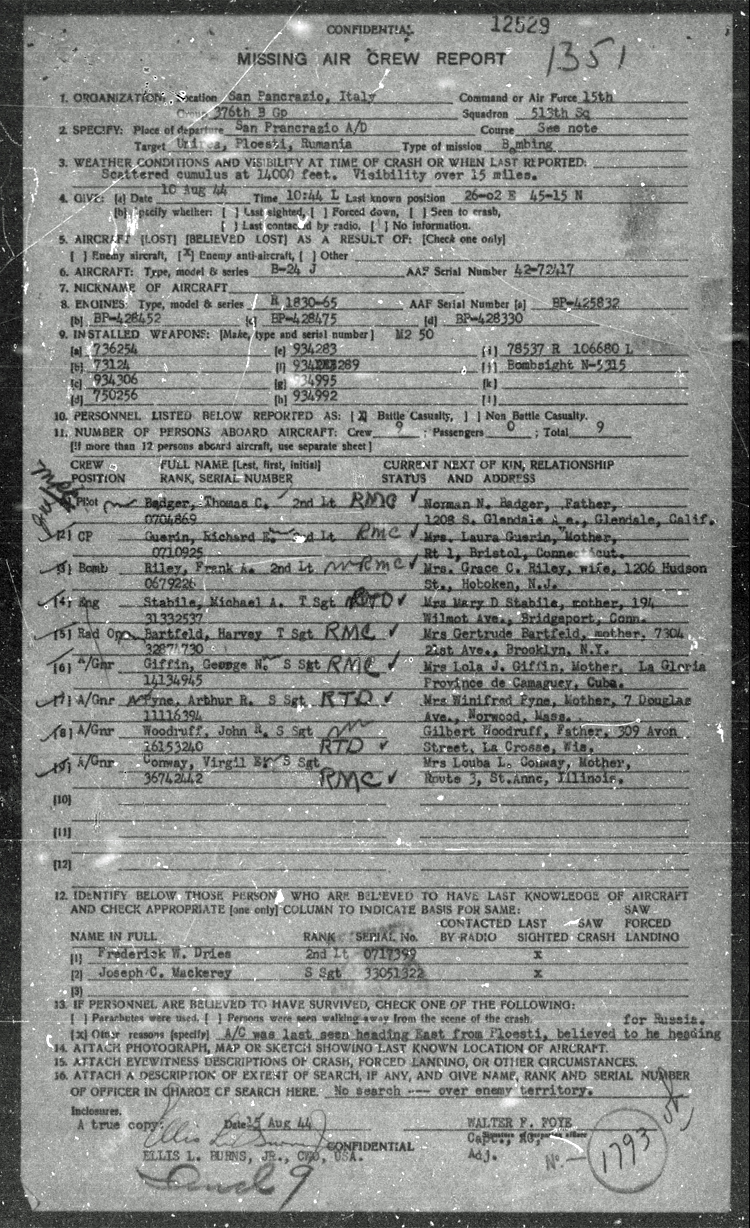 CONFIDENTIAL 12529
MISSING AIR CREW REPORT 1351
1. ORGANIZATION: Location San Pancrazio, Italy Command or Air Force 15th
Group 376th B Gp Squadron 513th Sq
2. SPECIFY: Place of departure San Prancrazio A/D Course See note
Target Ploesti, Rumania Type of mission Bombing
3. WEATHER CONDITIONS AND VISIBILITY AT TIME OF CRASH OR WHEN LAST REPORTED:
Scattered cumulus at 14000 feet. Visibility over 15 miles.
4. GIVE: [a] Date 10 Aug 44 Time 10:44 L Last known position 26-02 E 45-15 N
[b] Specify whether: [ ] Last sighted, [ ] Forced down, [ ] Seen to crash,
[ ] Last contacted by radio, [ ] No information.
5. AIRCRAFT [LOST] [BELIEVED LOST] AS A RESULT OF: [Check one only]
[ ] Enemy aircraft, [X] Enemy anti-aircraft, [ ] Other
6. AIRCRAFT: Type, model & series B-24 J AAF Serial Number 42-72417
7. NICKNAME OF AIRCRAFT
8. ENGINES: Type, model & series R 1830-65 AAF Serial Number [a] BP-425832
[b] BP-428452 [c] BP-428475 [d] BP-428330
9. INSTALLED WEAPONS: [Make, type and serial number] M2 50
[a] 736254 [e] 934283 [i] 78537 R 106680 L
[b] 73124 [f] [j] Bombsight N-5315
[c] 934306 [g] 934995 [k]
[d] 750256 [h] 934992 [l]
10. PERSONNEL LISTED BELOW REPORTED AS: [X] Battle Casualty, [ ] Non Battle Casualty.
11. NUMBER OF PERSONS ABOARD AIRCRAFT: Crew 9 ; Passengers 0 ; Total 9
[If more than 12 persons aboard aircraft, use separate sheet]
CREW FULL NAME [Last, first, initial] CURRENT NEXT OF KIN, RELATIONSHIP
POSITION RANK, SERIAL NUMBER STATUS AND ADDRESS
Pilot Badger, Thomas C. 2nd Lt RMC Norman N. Badger, Father,
0704869 1208 S. Glendale Ave., Glendale, Calif.
[2] CP Guerin, Richard E. 2nd Lt RMC Mrs. Laura Guerin, Mother,
0710925 Rt 1, Bristol, Connecticut.
[3] Bomb Riley, Frank A. 2nd Lt RMC Mrs. Grace C. Riley, wife, 1206 Hudson
0679226 St., Hoboken, N.J.
[4] Eng Stabile, Michael A. T Sgt RTD Mrs Mary D Stabile, mother, 194
31332537 Wilmot Ave., Bridgeport, Conn.
[5] Rad Op Bartfeld, Harvey T Sgt RMC Mrs Gertrude Bartfeld, mother, 7304
32871730 21st Ave., Brooklyn, N.Y.
[6] A/Gnr Giffin, George N. S Sgt RMC Mrs Lola J. Giffin, Mother, La Gloria
14134945 Province de Camaguey, Cuba.
[7] A/Gnr Fyne, Arthur R. S Sgt RTD Mrs Winifred Fyne, Mother, 7 Douglas
11116394 Ave., Norwood, Mass.
[8] A/Gnr Woodruff, John R. S Sgt Gilbert Woodruff, Father, 309 Avon
16153240 RTD Street, La Crosse, Wis.
[9] A/Gnr Conway, Virgil E. S Sgt Mrs Louba L. Conway, Mother,
36742442 RMC Route 3, St.Anne, Illinois.
[10]
[11]
[12]
12. IDENTIFY BELOW THOSE PERSONS WHO ARE BELIEVED TO HAVE LAST KNOWLEDGE OF AIRCRAFT
AND CHECK APPROPRIATE [one only] COLUMN TO INDICATE BASIS FOR SAME: SAW
CONTACTED LAST SAW FORCED
NAME IN FULL RANK SERIAL No. BY RADIO SIGHTED CRASH LANDING
[1] Frederick W. Dries 2nd Lt 0717399 x
[2] Joseph C. Mackerey S Sgt 33051322 x
[3]
13. IF PERSONNEL ARE BELIEVED TO HAVE SURVIVED, CHECK ONE OF THE FOLLOWING:
[ ] Parachutes were used, [ ] Persons were seen walking away from the scene of the crash. for Russia.
[x] Other reasons [specify] A/C was last seen heading East from Ploesti, believed to be heading
14. ATTACH PHOTOGRAPH, MAP OR SKETCH SHOWING LAST KNOWN LOCATION OF AIRCRAFT.
15. ATTACH EYEWITNESS DESCRIPTIONS OF CRASH, FORCED LANDING, OR OTHER CIRCUMSTANCES.
16. ATTACH A DESCRIPTION OF EXTENT OF SEARCH, IF ANY, AND GIVE NAME, RANK AND SERIAL NUMBER
OF OFFICER IN CHARGE OF SEARCH HERE. No search --- over enemy territory.
Inclosures.
A true copy: Date 15 Aug 44 WALTER F. FOYE
CONFIDENTIAL Capt., AC,
ELLIS L. BURNS, JR., CWO, USA. Adj. No - 1793